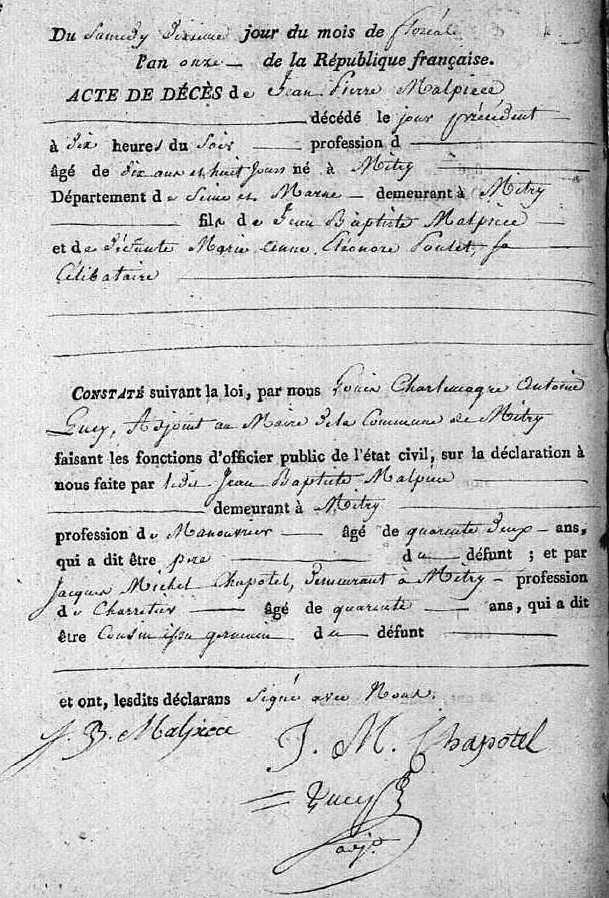 Du Samedy Dixieme jour du mois de floréal
l'an onze — de la République française.
ACTE DE DÉCÈS de Jean Pierre Malpiece
décédé le jour précédent
à dix heures du Soir — profession d
âgé de dix ans et huit jours né à Mitry
Département de Seine et Marne — demeurant à Mitry
fils de Jean Baptiste Malpiece
et de défunte Marie Anne Eléonore Poulet, sa
Célibataire
CONSTATÉ suivant la loi, par nous Louis Charlemagne Antoine
Lucy, Adjoint au Maire de la Commune de Mitry
faisant les fonctions d'officier public de l'état civil, sur la déclaration à
nous faite par ledit Jean Baptiste Malpiece
demeurant à Mitry
profession de Manouvrier — âgé de quarante deux — ans,
qui a dit être pere — du — défunt ; et par
Jacques Michel Chapotel, demeurant à Mitry — profession
de Charretier — âgé de quarante — ans, qui a dit
être Cousin issu germain du — défunt
et ont, lesdits déclarans signé avec Nous.
J. B. Malpiece
J. M. Chapotel
Lucy
adjt